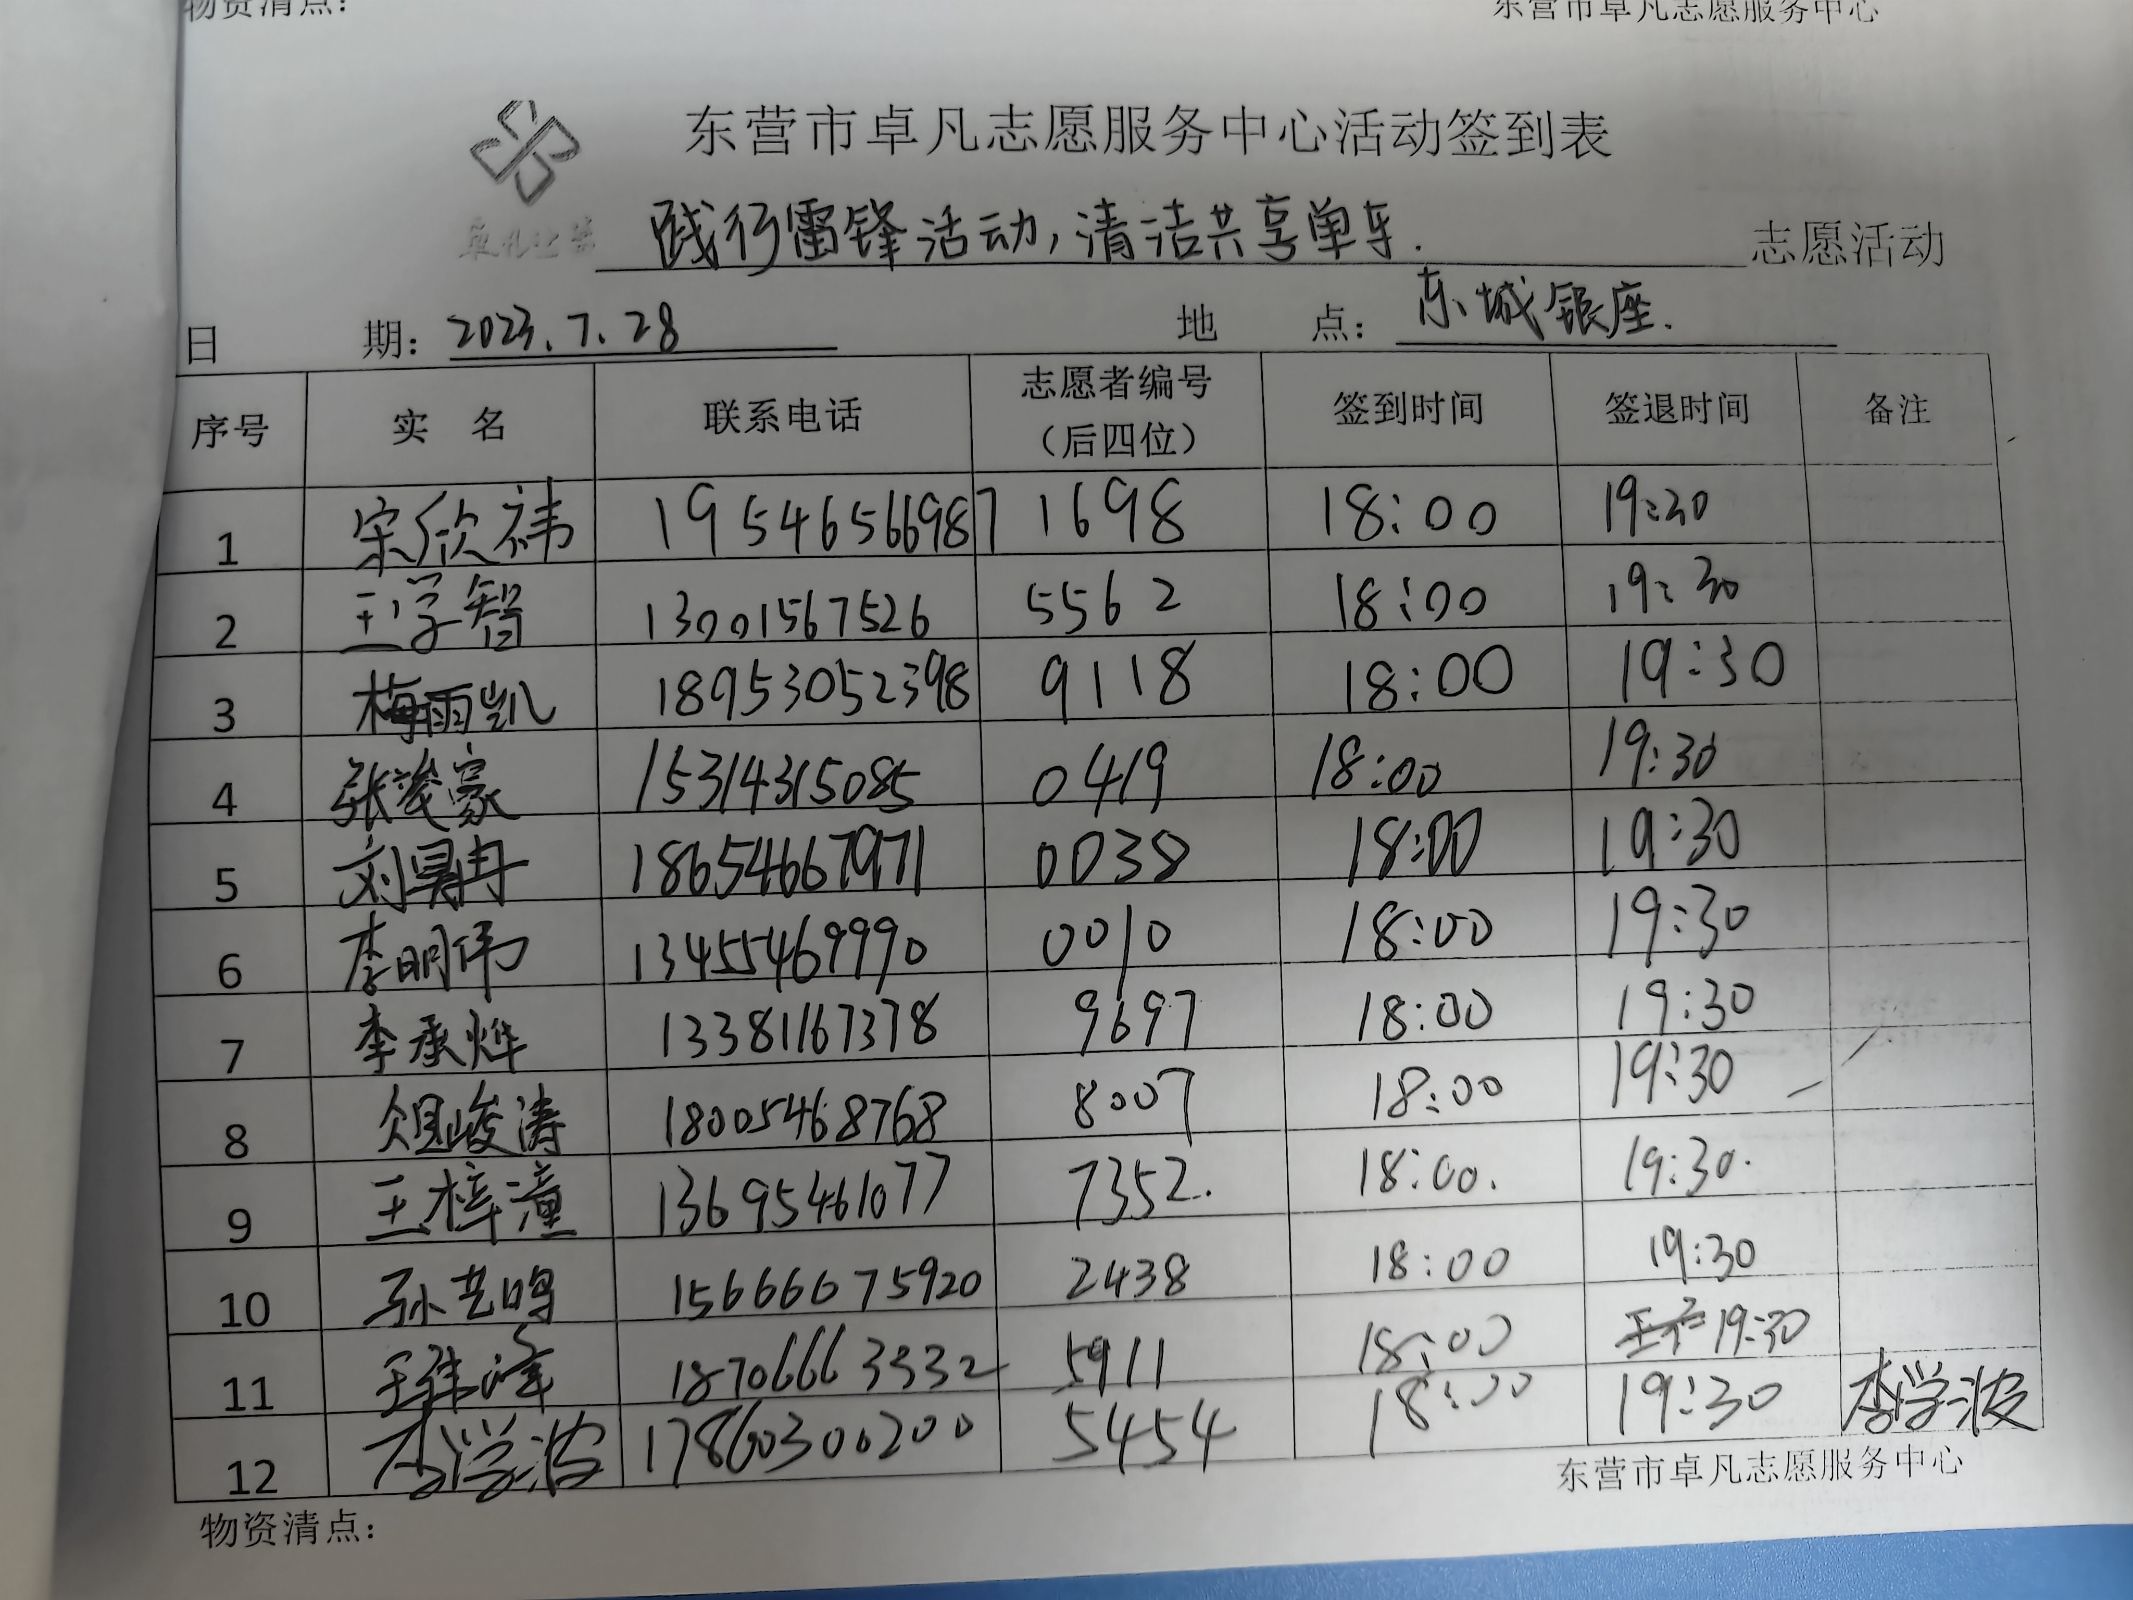 物资清点：
东营市卓凡志愿服务中心
东营市卓凡志愿服务中心活动签到表
践行雷锋活动，清洁共享单车. 志愿活动
日 期：2023.7.28 地 点：东城银座.
序号 实 名 联系电话 志愿者编号（后四位） 签到时间 签退时间 备注
1 宋欣祎 19546566987 1698 18:00 19:30
2 王学智 13001567526 5562 18:00 19:30
3 梅雨凯 18953052398 9118 18:00 19:30
4 张峻豪 15314315085 0419 18:00 19:30
5 刘昊冉 18654667971 0038 18:00 19:30
6 李明伟 13455469990 0010 18:00 19:30
7 李承烨 13381167378 9697 18:00 19:30
8 峻涛 18005468768 8007 18:00 19:30
9 王梓潼 13695461077 7352. 18:00. 19:30.
10 孙艺鸣 15666675920 2438 18:00 19:30
11 王祎泽 18706663332 5911 18:00 19:30
12 李学波 17860300200 5454 18:00 19:30 李学波
东营市卓凡志愿服务中心
物资清点：